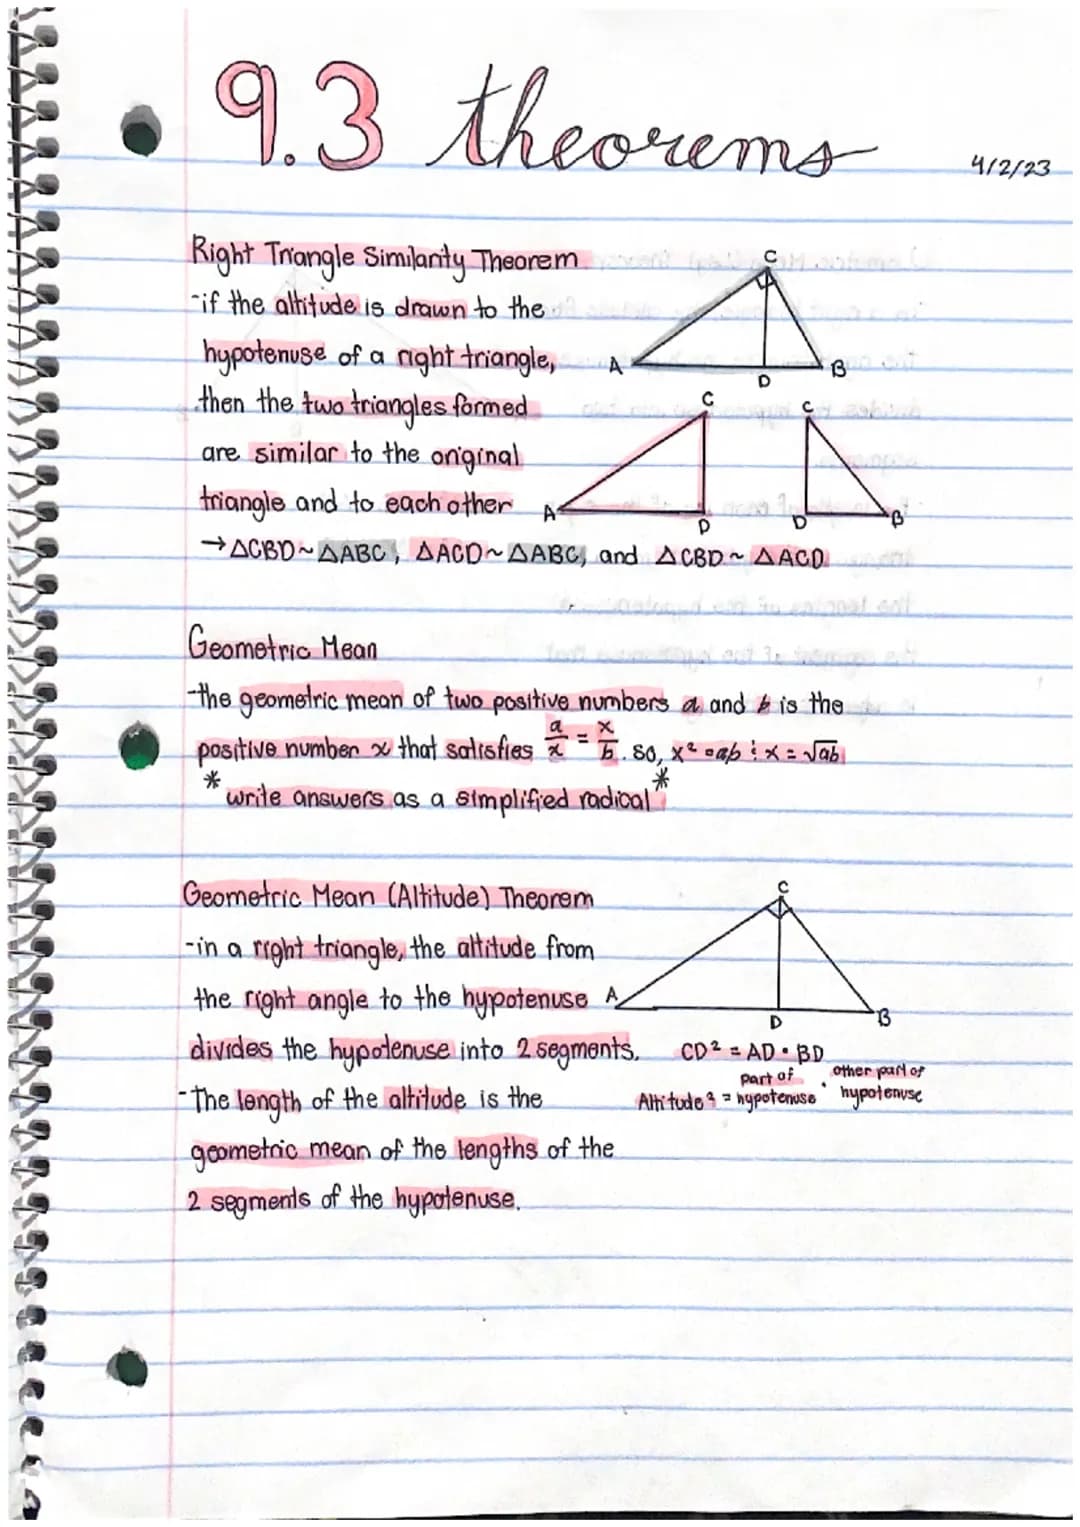 9.3 theorems
4/2/23
Right Triangle Similarity Theorem
-if the altitude is drawn to the
hypotenuse of a right triangle,
then the two triangles formed
are similar to the original
triangle and to each other
→△CBD~△ABC, △ACD~△ABC, and △CBD~△ACD
C
A
D
B
C
A
D
C
D
B
Geometric Mean
-the geometric mean of two positive numbers a and b is the
positive number x that satisfies a/x = x/b. so, x² = ab ; x = √ab
* write answers as a simplified radical *
Geometric Mean (Altitude) Theorem
-in a right triangle, the altitude from
the right angle to the hypotenuse
divides the hypotenuse into 2 segments.
-The length of the altitude is the
geometric mean of the lengths of the
2 segments of the hypotenuse.
C
A
D
B
CD² = AD · BD
Altitude² = part of hypotenuse · other part of hypotenuse